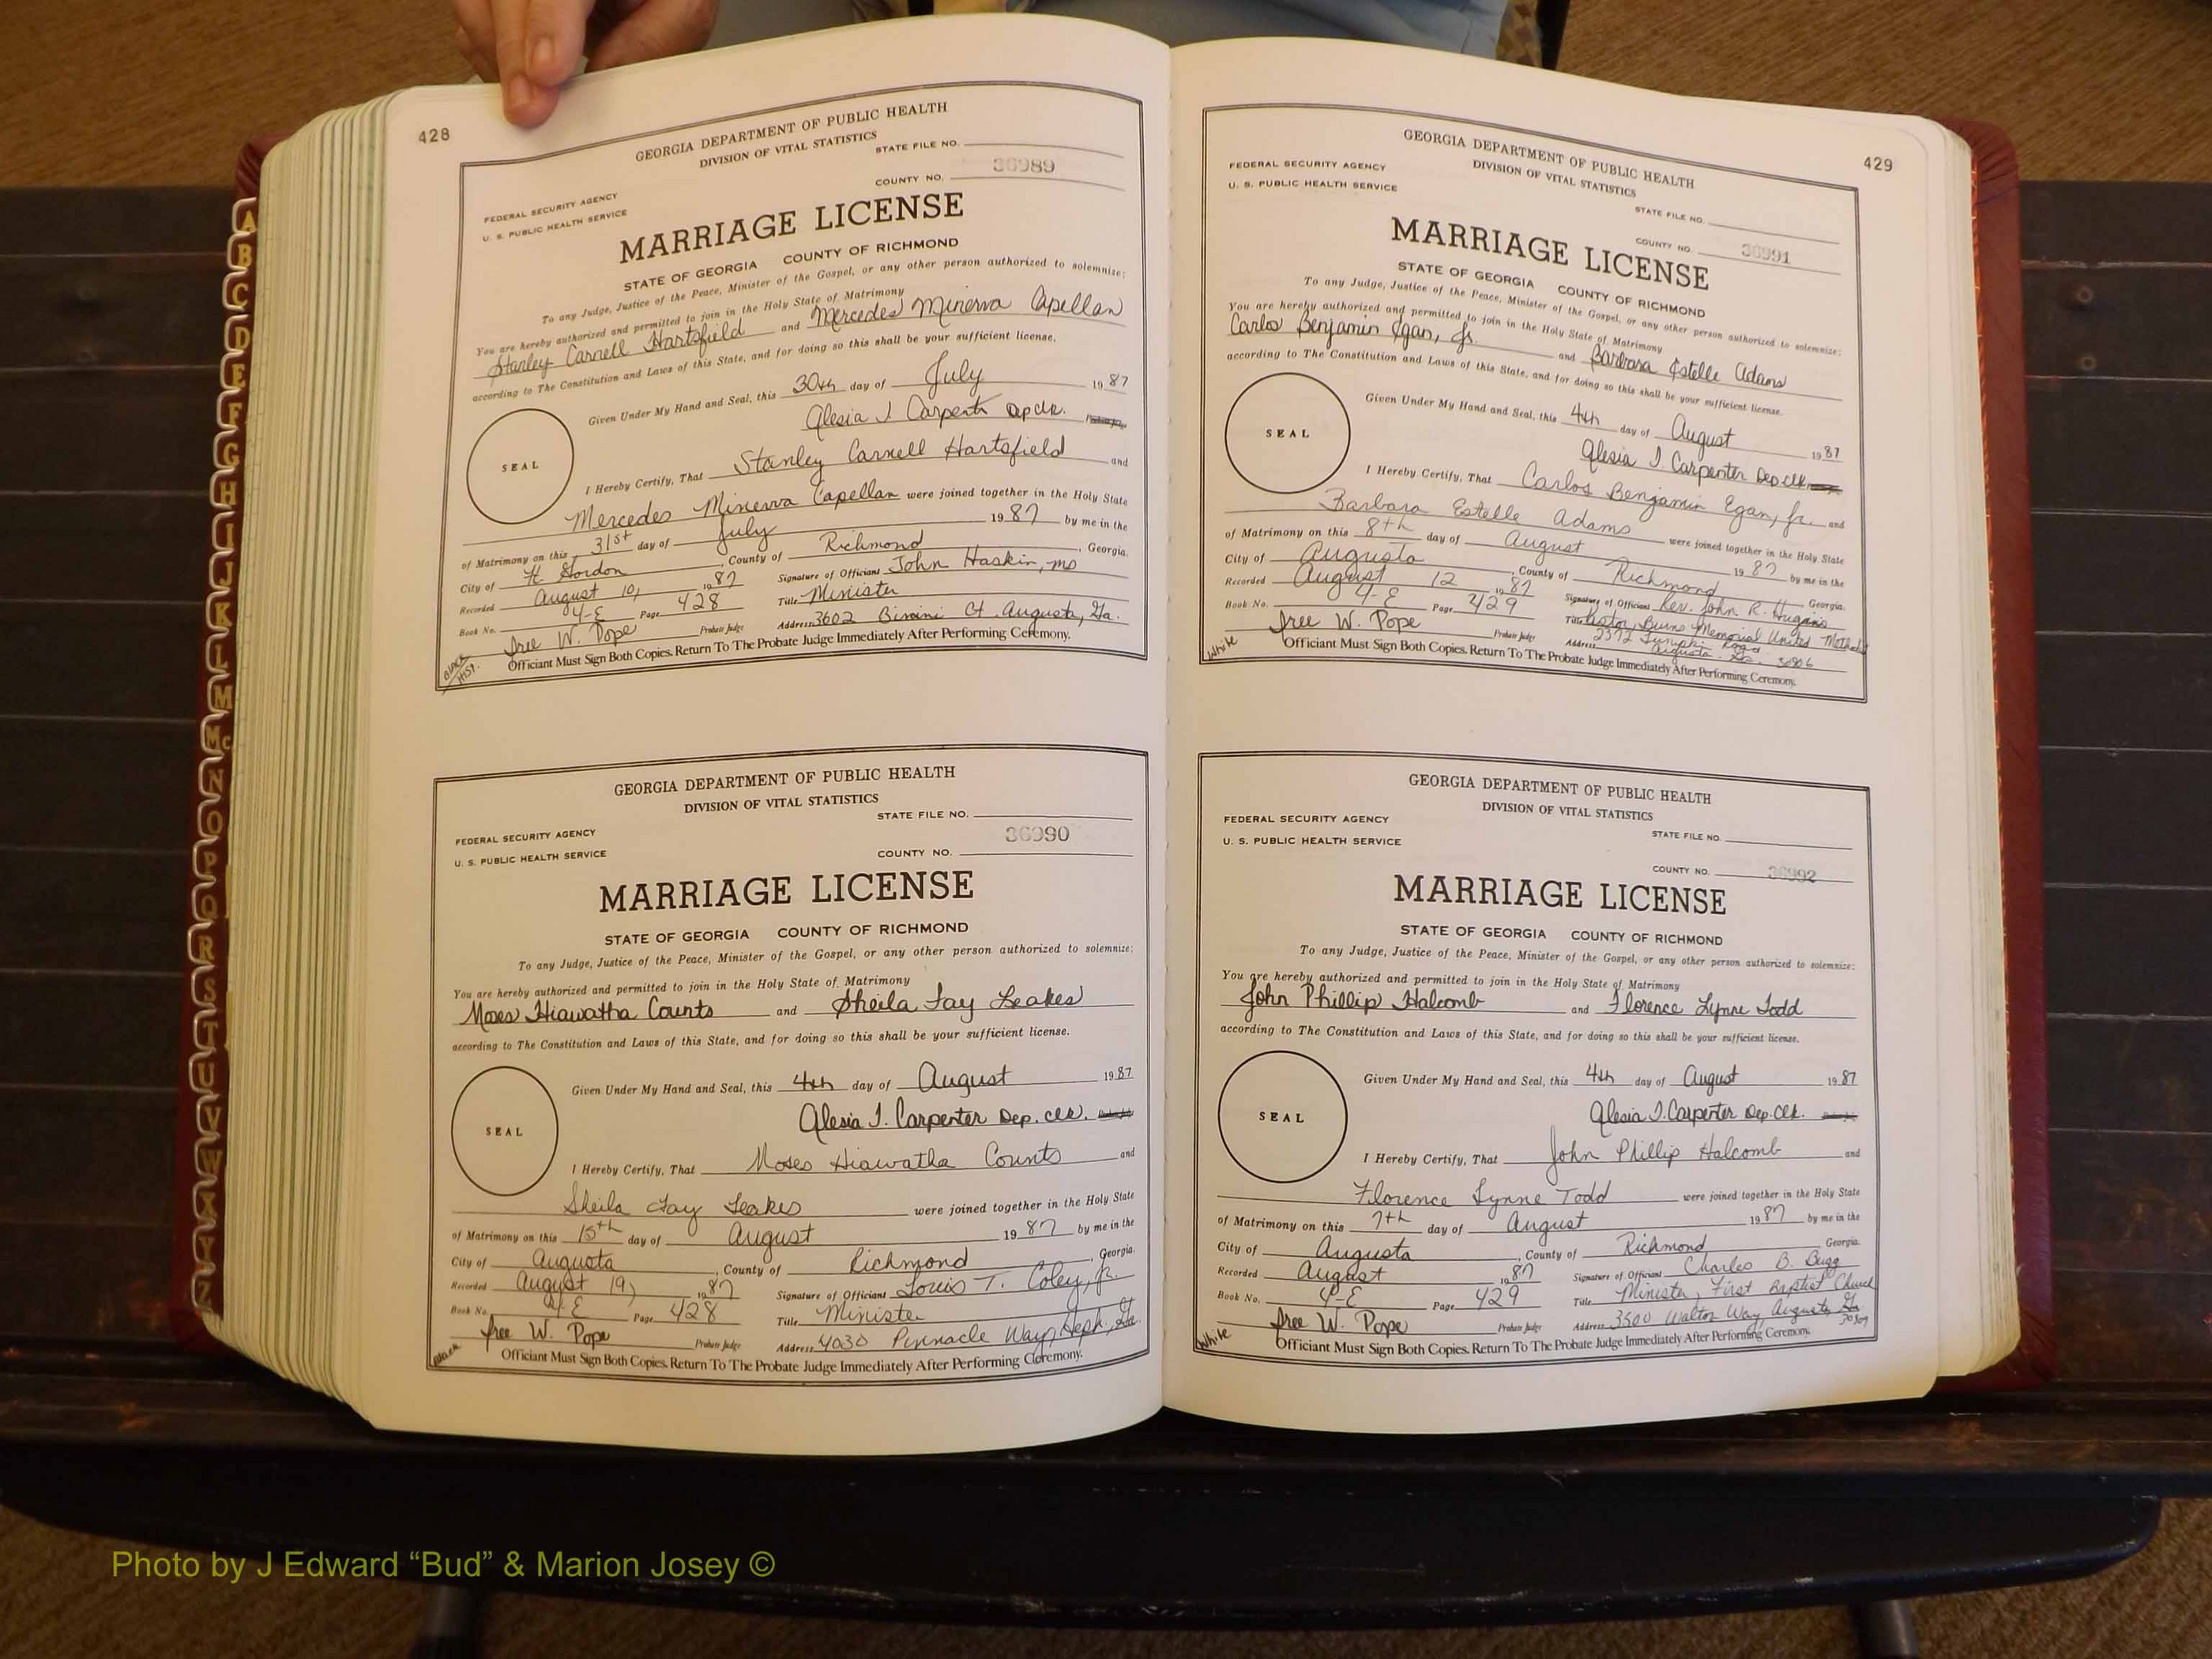 428
GEORGIA DEPARTMENT OF PUBLIC HEALTH
DIVISION OF VITAL STATISTICS
STATE FILE NO.
36989
COUNTY NO.
FEDERAL SECURITY AGENCY
U. S. PUBLIC HEALTH SERVICE
MARRIAGE LICENSE
STATE OF GEORGIA COUNTY OF RICHMOND
To any Judge, Justice of the Peace, Minister of the Gospel, or any other person authorized to solemnize:
You are hereby authorized and permitted to join in the Holy State of Matrimony
Stanley Carnell Hartsfield and Mercedes Minerva Capellan
according to The Constitution and Laws of this State, and for doing so this shall be your sufficient license.
Given Under My Hand and Seal, this 30th day of July 1987
Alesia J. Carpenter Dep Clk.
SEAL
I Hereby Certify, That Stanley Carnell Hartsfield and
Mercedes Minerva Capellan were joined together in the Holy State
of Matrimony on this 31st day of July 1987 by me in the
City of Ft. Gordon, County of Richmond, Georgia.
Recorded August 10, 1987 Signature of Officiant John Haskin, MS
Book No. 4-E Page 428 Title Minister
Iree W. Pope Probate Judge Address 3602 Bimini Ct. Augusta, Ga.
Officiant Must Sign Both Copies. Return To The Probate Judge Immediately After Performing Ceremony.
Black/Hisp.
GEORGIA DEPARTMENT OF PUBLIC HEALTH
DIVISION OF VITAL STATISTICS
STATE FILE NO.
36990
FEDERAL SECURITY AGENCY
U. S. PUBLIC HEALTH SERVICE
COUNTY NO.
MARRIAGE LICENSE
STATE OF GEORGIA COUNTY OF RICHMOND
To any Judge, Justice of the Peace, Minister of the Gospel, or any other person authorized to solemnize:
You are hereby authorized and permitted to join in the Holy State of Matrimony
Moses Hiawatha Counts and Sheila Fay Leakes
according to The Constitution and Laws of this State, and for doing so this shall be your sufficient license.
Given Under My Hand and Seal, this 4th day of August 1987
Alesia J. Carpenter Dep. Clk.
SEAL
I Hereby Certify, That Moses Hiawatha Counts and
Sheila Fay Leakes were joined together in the Holy State
of Matrimony on this 15th day of August 1987 by me in the
City of Augusta, County of Richmond, Georgia.
Recorded August 19, 1987 Signature of Officiant Louis T. Coley, Jr.
Book No. 4-E Page 428 Title Minister
Iree W. Pope Probate Judge Address 4030 Pinnacle Way, Heph, Ga.
Officiant Must Sign Both Copies. Return To The Probate Judge Immediately After Performing Ceremony.
Black
429
GEORGIA DEPARTMENT OF PUBLIC HEALTH
DIVISION OF VITAL STATISTICS
FEDERAL SECURITY AGENCY
U. S. PUBLIC HEALTH SERVICE
STATE FILE NO.
COUNTY NO. 36991
MARRIAGE LICENSE
STATE OF GEORGIA COUNTY OF RICHMOND
To any Judge, Justice of the Peace, Minister of the Gospel, or any other person authorized to solemnize:
You are hereby authorized and permitted to join in the Holy State of Matrimony
Carlos Benjamin Egan, Jr. and Barbara Estelle Adams
according to The Constitution and Laws of this State, and for doing so this shall be your sufficient license.
Given Under My Hand and Seal, this 4th day of August 1987
Alesia J. Carpenter Dep Clk
SEAL
I Hereby Certify, That Carlos Benjamin Egan, Jr. and
Barbara Estelle Adams were joined together in the Holy State
of Matrimony on this 8th day of August 1987 by me in the
City of Augusta, County of Richmond, Georgia.
Recorded August 12 1987 Signature of Officiant Rev. John R. Hugans
Book No. 4-E Page 429 Title Pastor, Burns Memorial United Methodist
Iree W. Pope Probate Judge Address 2372 Lumpkin Road
Augusta Ga. 30906
Officiant Must Sign Both Copies. Return To The Probate Judge Immediately After Performing Ceremony.
White
GEORGIA DEPARTMENT OF PUBLIC HEALTH
DIVISION OF VITAL STATISTICS
FEDERAL SECURITY AGENCY
U. S. PUBLIC HEALTH SERVICE
STATE FILE NO.
COUNTY NO. 36992
MARRIAGE LICENSE
STATE OF GEORGIA COUNTY OF RICHMOND
To any Judge, Justice of the Peace, Minister of the Gospel, or any other person authorized to solemnize:
You are hereby authorized and permitted to join in the Holy State of Matrimony
John Phillip Halcomb and Florence Lynne Todd
according to The Constitution and Laws of this State, and for doing so this shall be your sufficient license.
Given Under My Hand and Seal, this 4th day of August 1987
Alesia J. Carpenter Dep. Clk.
SEAL
I Hereby Certify, That John Phillip Halcomb and
Florence Lynne Todd were joined together in the Holy State
of Matrimony on this 7th day of August 1987 by me in the
City of Augusta, County of Richmond Georgia.
Recorded August 1987 Signature of Officiant Charles B. Bugg
Book No. 4-E Page 429 Title Minister, First Baptist Church
Iree W. Pope Probate Judge Address 3500 Walton Way, Augusta, Ga. 30909
Officiant Must Sign Both Copies. Return To The Probate Judge Immediately After Performing Ceremony.
White
A
B
C
D
E
F
G
H
I
J
K
L
M
Mc
N
O
P
Q
R
S
T
U
V
W
X
Y
Z
Photo by J Edward “Bud” & Marion Josey ©